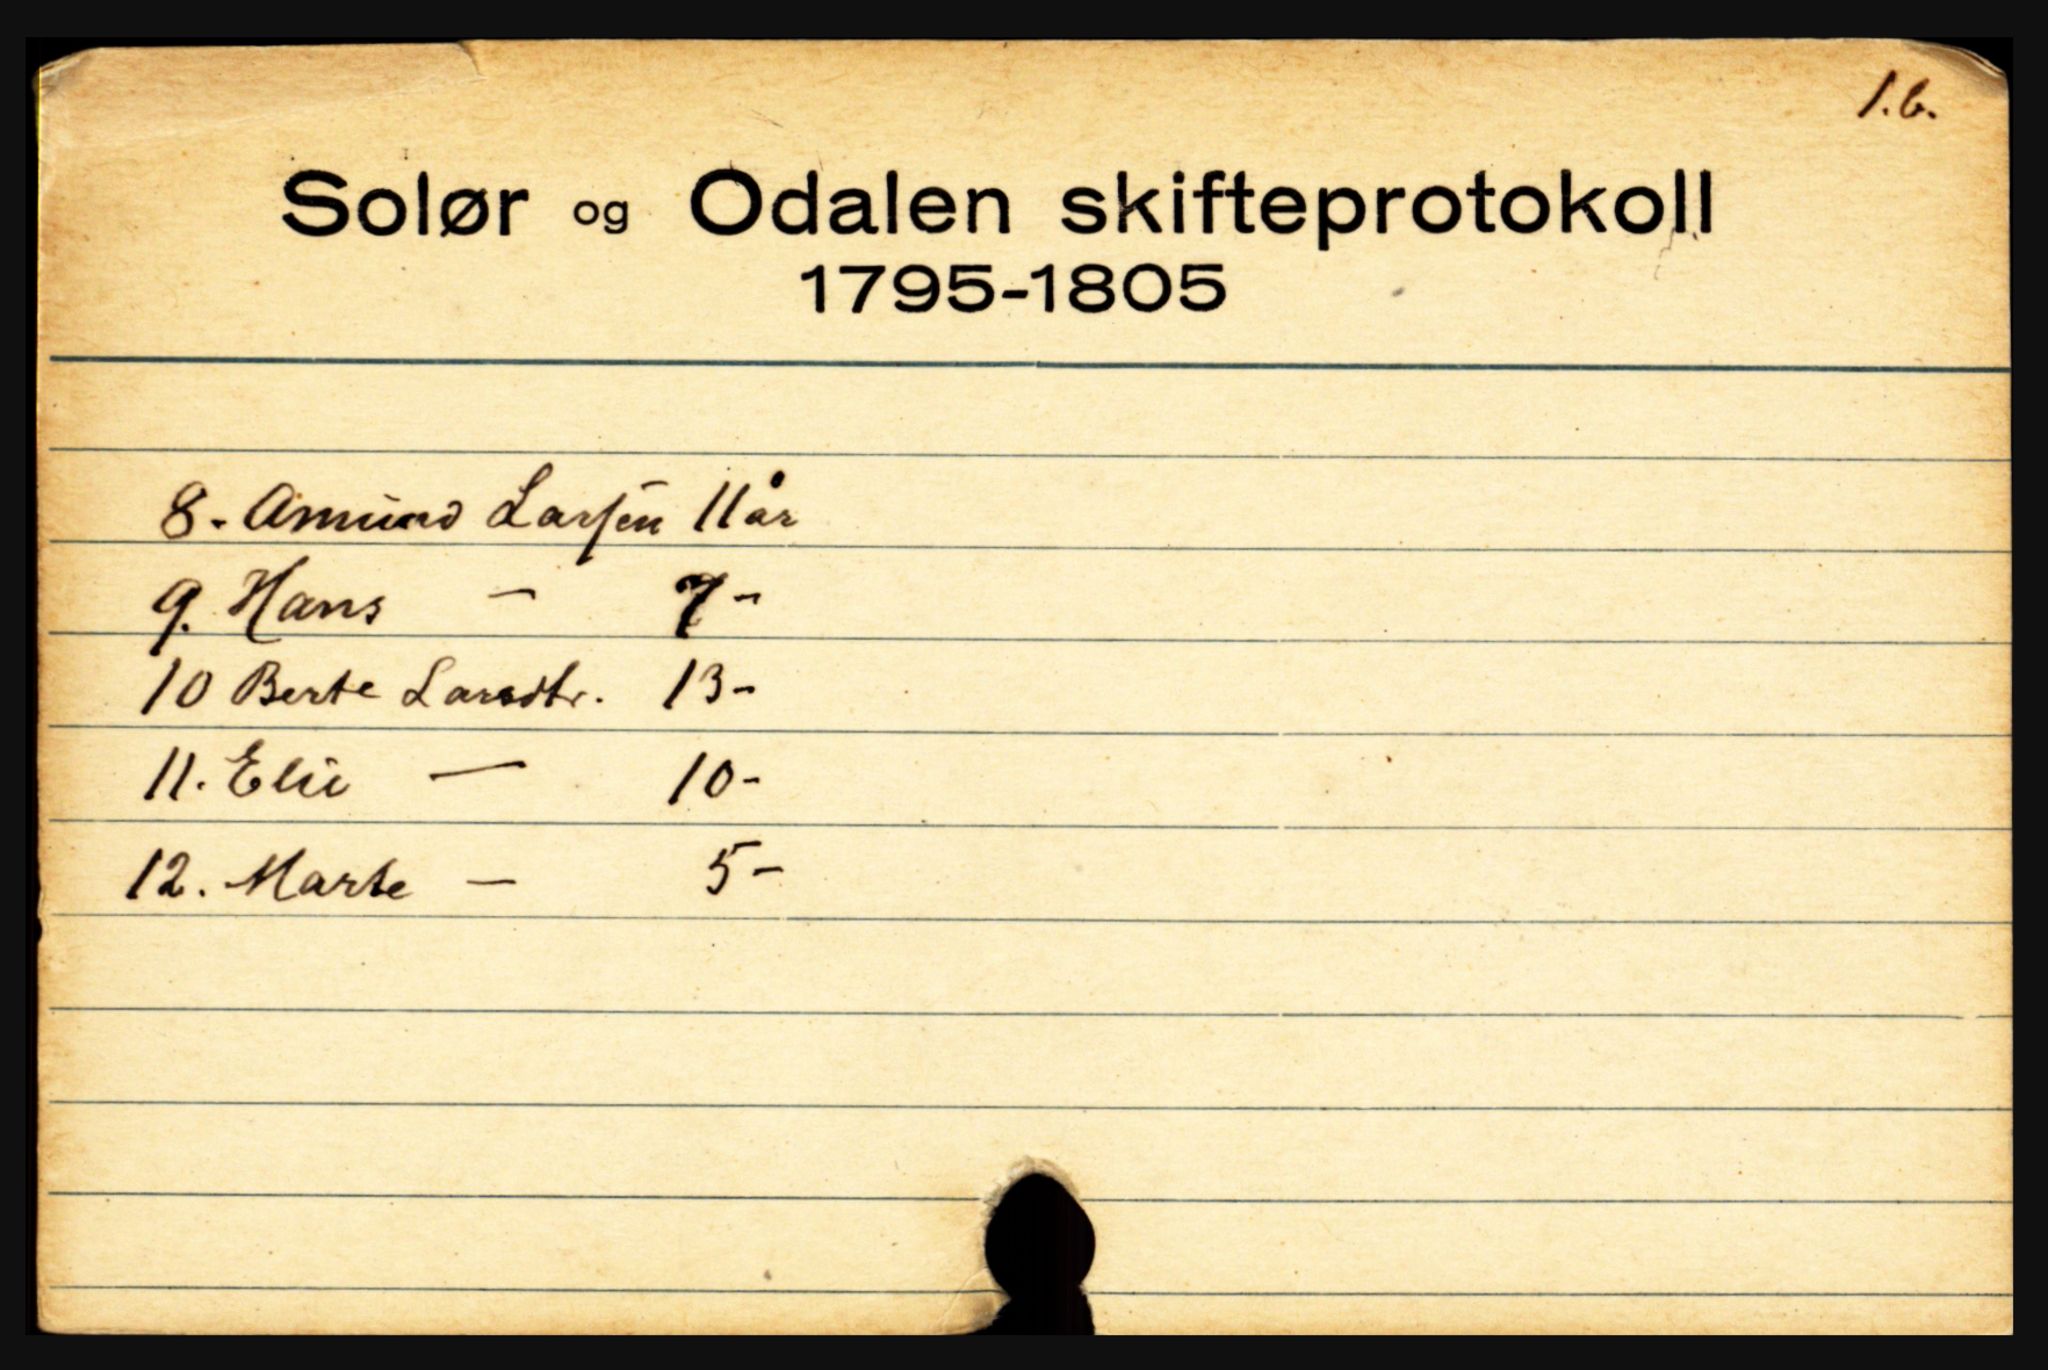 1.b.
Solør og Odalen skifteprotokoll
1795-1805
8. Amund Larsen 11 år
9. Hans — 7 -
10 Berte Larsdtr. 13 -
11. Elie — 10 -
12. Marte — 5 -